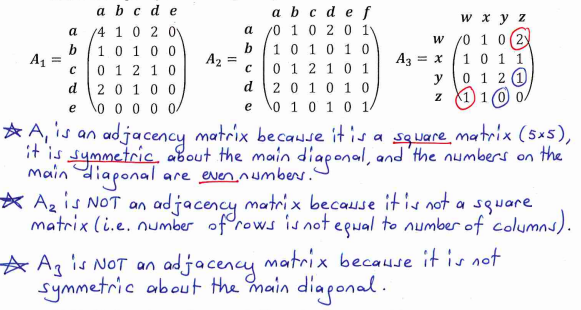 a b c d e
a b c d e f
w x y z
A₁ =
a 4 1 0 2 0
b 1 0 1 0 0
c 0 1 2 1 0
d 2 0 1 0 0
e 0 0 0 0 0
A₂ =
a 0 1 0 2 0 1
b 1 0 1 0 1 0
c 0 1 2 1 0 1
d 2 0 1 0 1 0
e 0 1 0 1 0 1
A₃ =
w 0 1 0 2
x 1 0 1 1
y 0 1 2 1
z 1 1 0 0
☆ A₁ is an adjacency matrix because it is a square matrix (5x5),
it is symmetric about the main diagonal, and the numbers on the
main diagonal are even numbers.
☆ A₂ is NOT an adjacency matrix because it is not a square
matrix (i.e. number of rows is not equal to number of columns).
☆ A₃ is NOT an adjacency matrix because it is not
symmetric about the main diagonal.